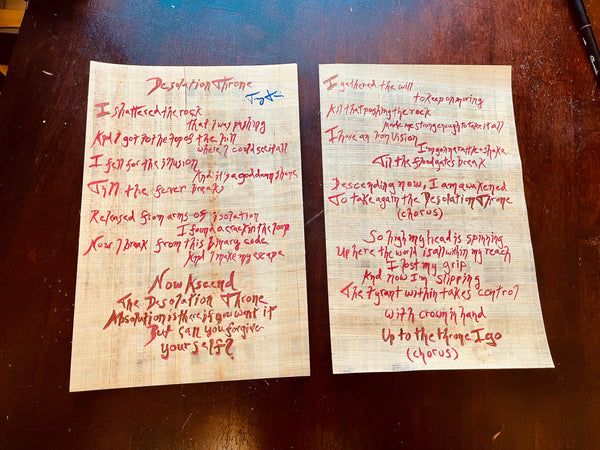 Desolation Throne
I shattered the rock
that I was pushing
And I got to the top of the hill
where I could see it all
I fell for the illusion
And it's a goddamn shame
Till the fever breaks
Released from arms of isolation
I found a crack in the loop
Now I break from this binary code
And I make my escape
Now Ascend
The Desolation Throne
Absolution is there if you want it
But can you forgive
yourself?
I gathered the will
to keep on moving
All that pushing the rock
made me strong enough to take it all
I have an iron vision
I'm gonna rattle + shake
Till the floodgates break
Descending now, I am awakened
To take again the Desolation Throne
(chorus)
So high my head is spinning
Up here the world is all within my reach
I lost my grip
And now I'm slipping
The tyrant within takes control
with crown in hand
Up to the throne I go
(chorus)